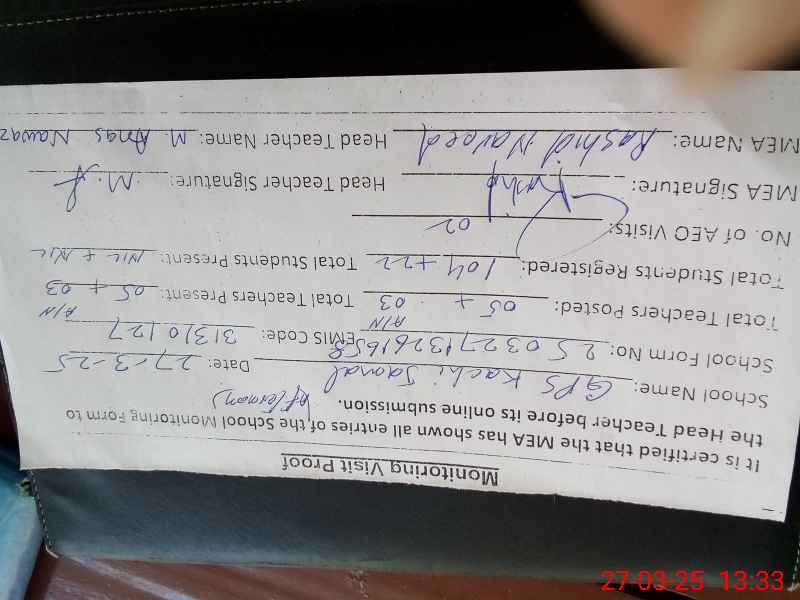 Monitoring Visit Proof
It is certified that the MEA has shown all entries of the School Monitoring Form to
the Head Teacher before its online submission. (Afternoon)
School Name: GPS Kachi Jaomal Date: 27-3-25
School Form No: 250327132616 58 EMIS Code: 31310127
A/N A/N
Total Teachers Posted: 05 + 03 Total Teachers Present: 05 + 03
Total Students Registered: 104 + 22 Total Students Present: NIL + NIL
No. of AEO Visits: 02
MEA Signature: Head Teacher Signature: M.A
MEA Name: Rashid Naveed Head Teacher Name: M. Anas Nawaz
27-03-25 13:33